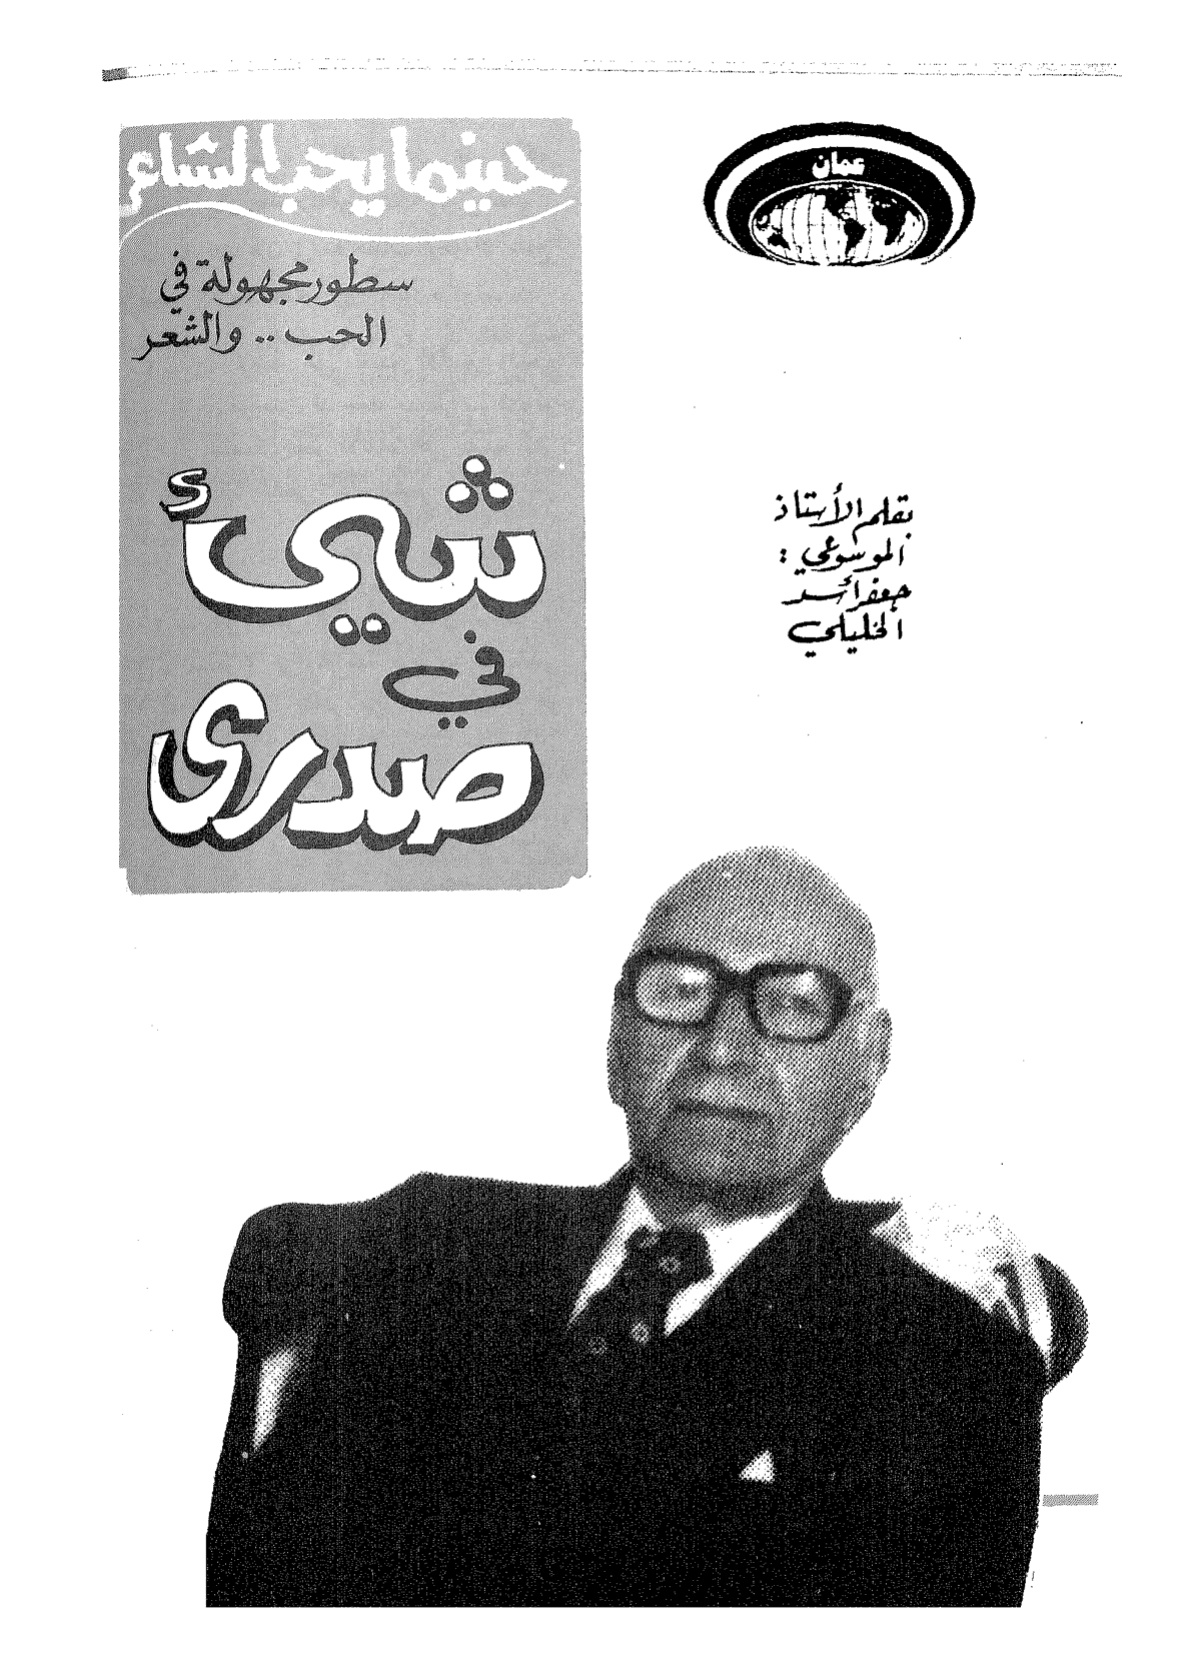 عمان
حينما يحب الشاعر
سطور مجهولة في
الحب .. والشعر
شيئ
في
صدرى
بقلم الأستاذ
الموسوعي :
جعفر أسد
الخليلي